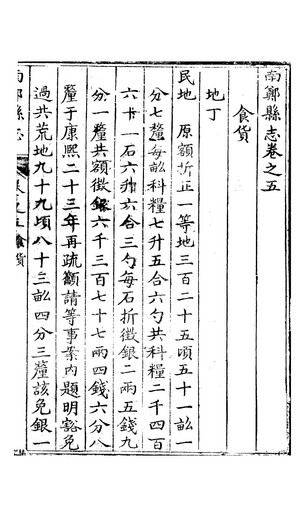 南鄭縣志卷之五
食貨
地丁
民地　原額折正一等地三百二十五頃五十一畝一
分七釐每畝科糧七升五合六勺共科糧二千四百
六十一石六升六合三勺每石折徵銀二兩五錢九
分一釐共額徵銀六千三百七十七兩四錢六分八
釐于康熙二十三年再疏籲請等事案內題明豁免
過共荒地九十九頃八十三畝四分三釐該免銀一
南鄭縣志
卷之五食貨